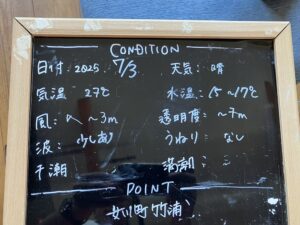 CONDITION
日付: 2025 7/3 天気: 晴
気温: 27℃ 水温: 15~17℃
風: ~3m 透明度: ~7m
波: 少しあり うねり: なし
干潮 満潮:
POINT
女川町竹浦